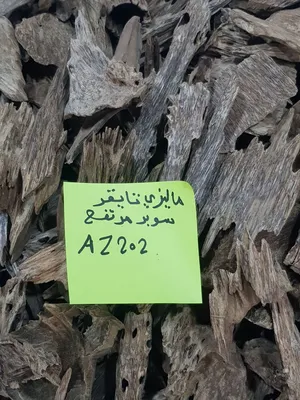 ماليزي تايقر
سوبر مرتفع
AZ202